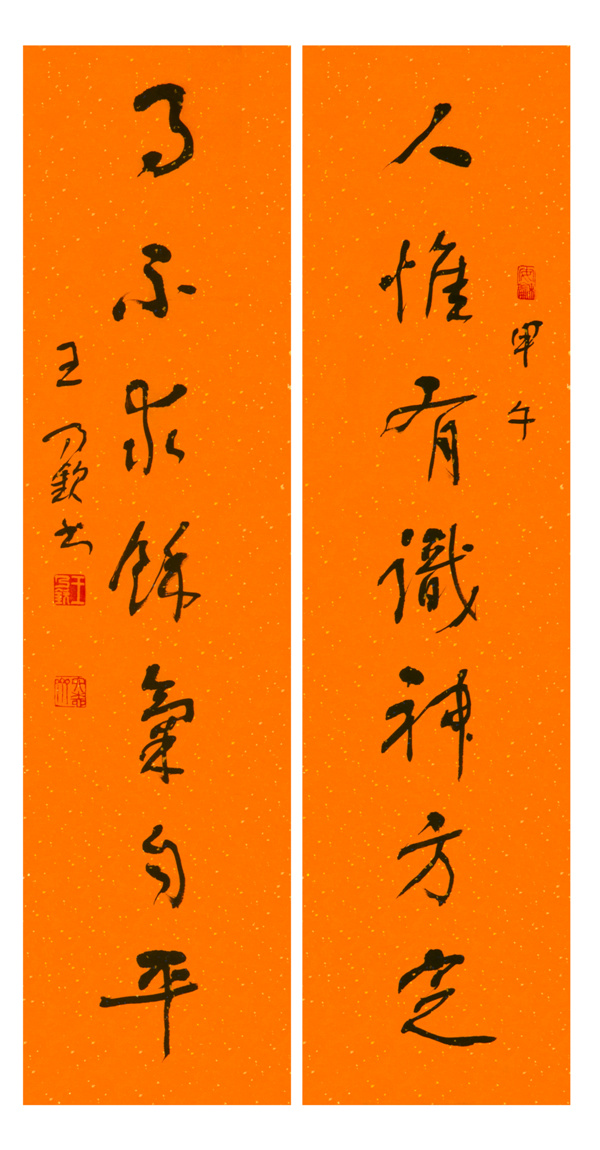 甲午
人惟有識神方定
事不求餘氣自平
王乃欽书